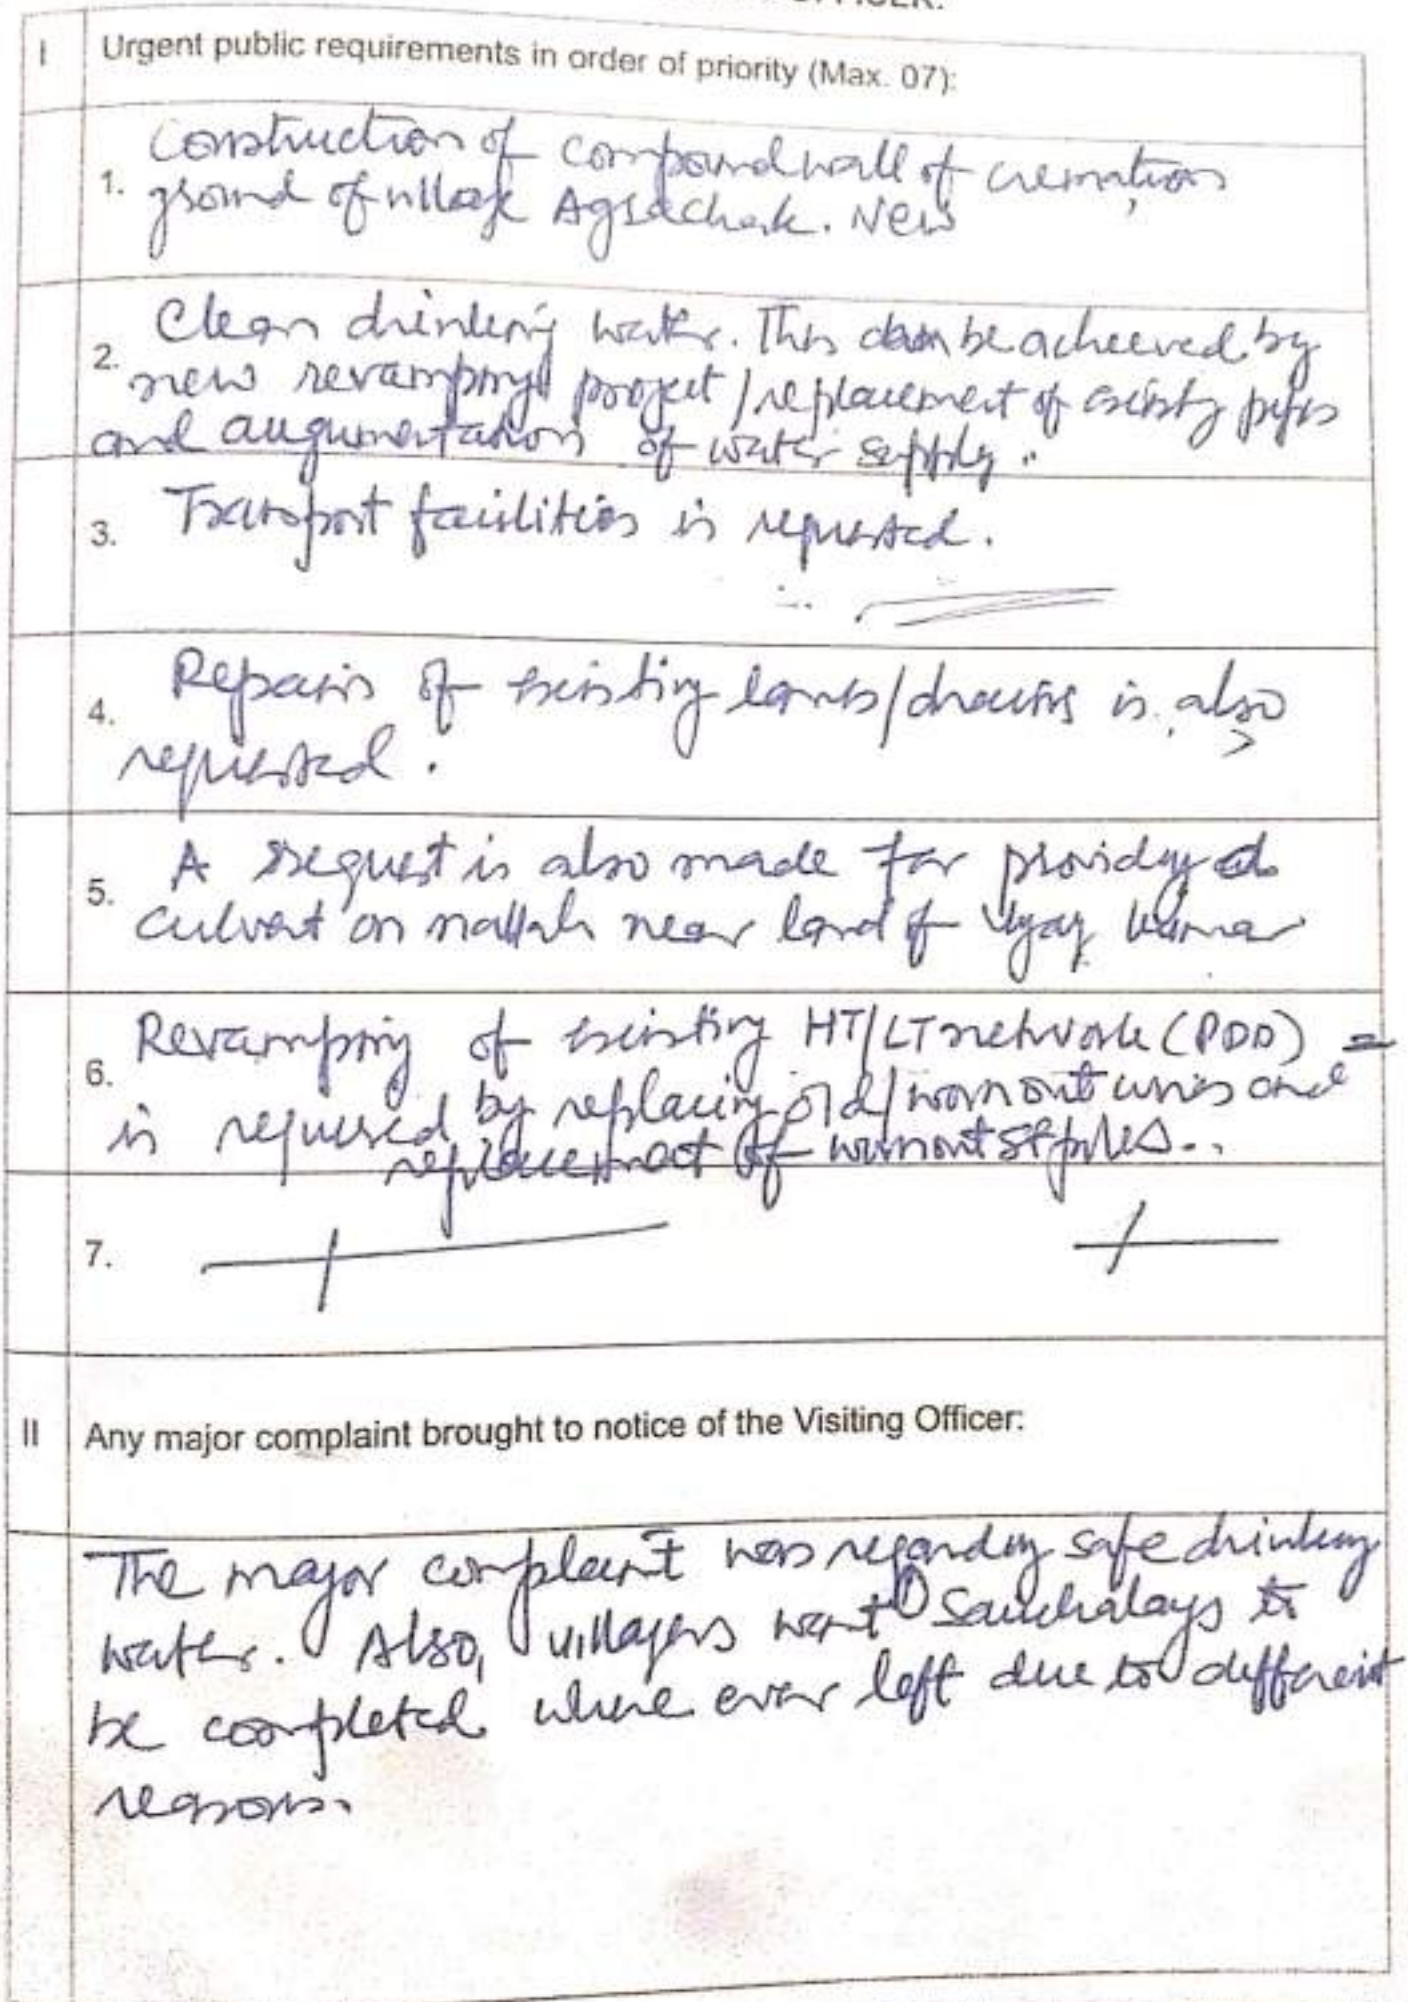 OFFICER.
I Urgent public requirements in order of priority (Max. 07):
Construction of compound wall of cremation
1. ground of village Agrachak. New
Clean drinking water. This can be acheeved by
2. new revamping project / replacement of existing pipes
and augumentation of water supply.
3. Transport facilities is requested.
Repairs of existing lanes/drains is also
4.
requested.
A request is also made for providing a
5. culvert on nallah near land of Vijay Kumar
Revamping of existing HT/LT network (PDD) =
6.
is required by replacing old/wornout wires and
replacement of wornout st poles..
7.
II Any major complaint brought to notice of the Visiting Officer:
The major complaint was regarding safe drinking
water. Also, villagers want Sauchalays to
be completed where ever left due to different
reasons.